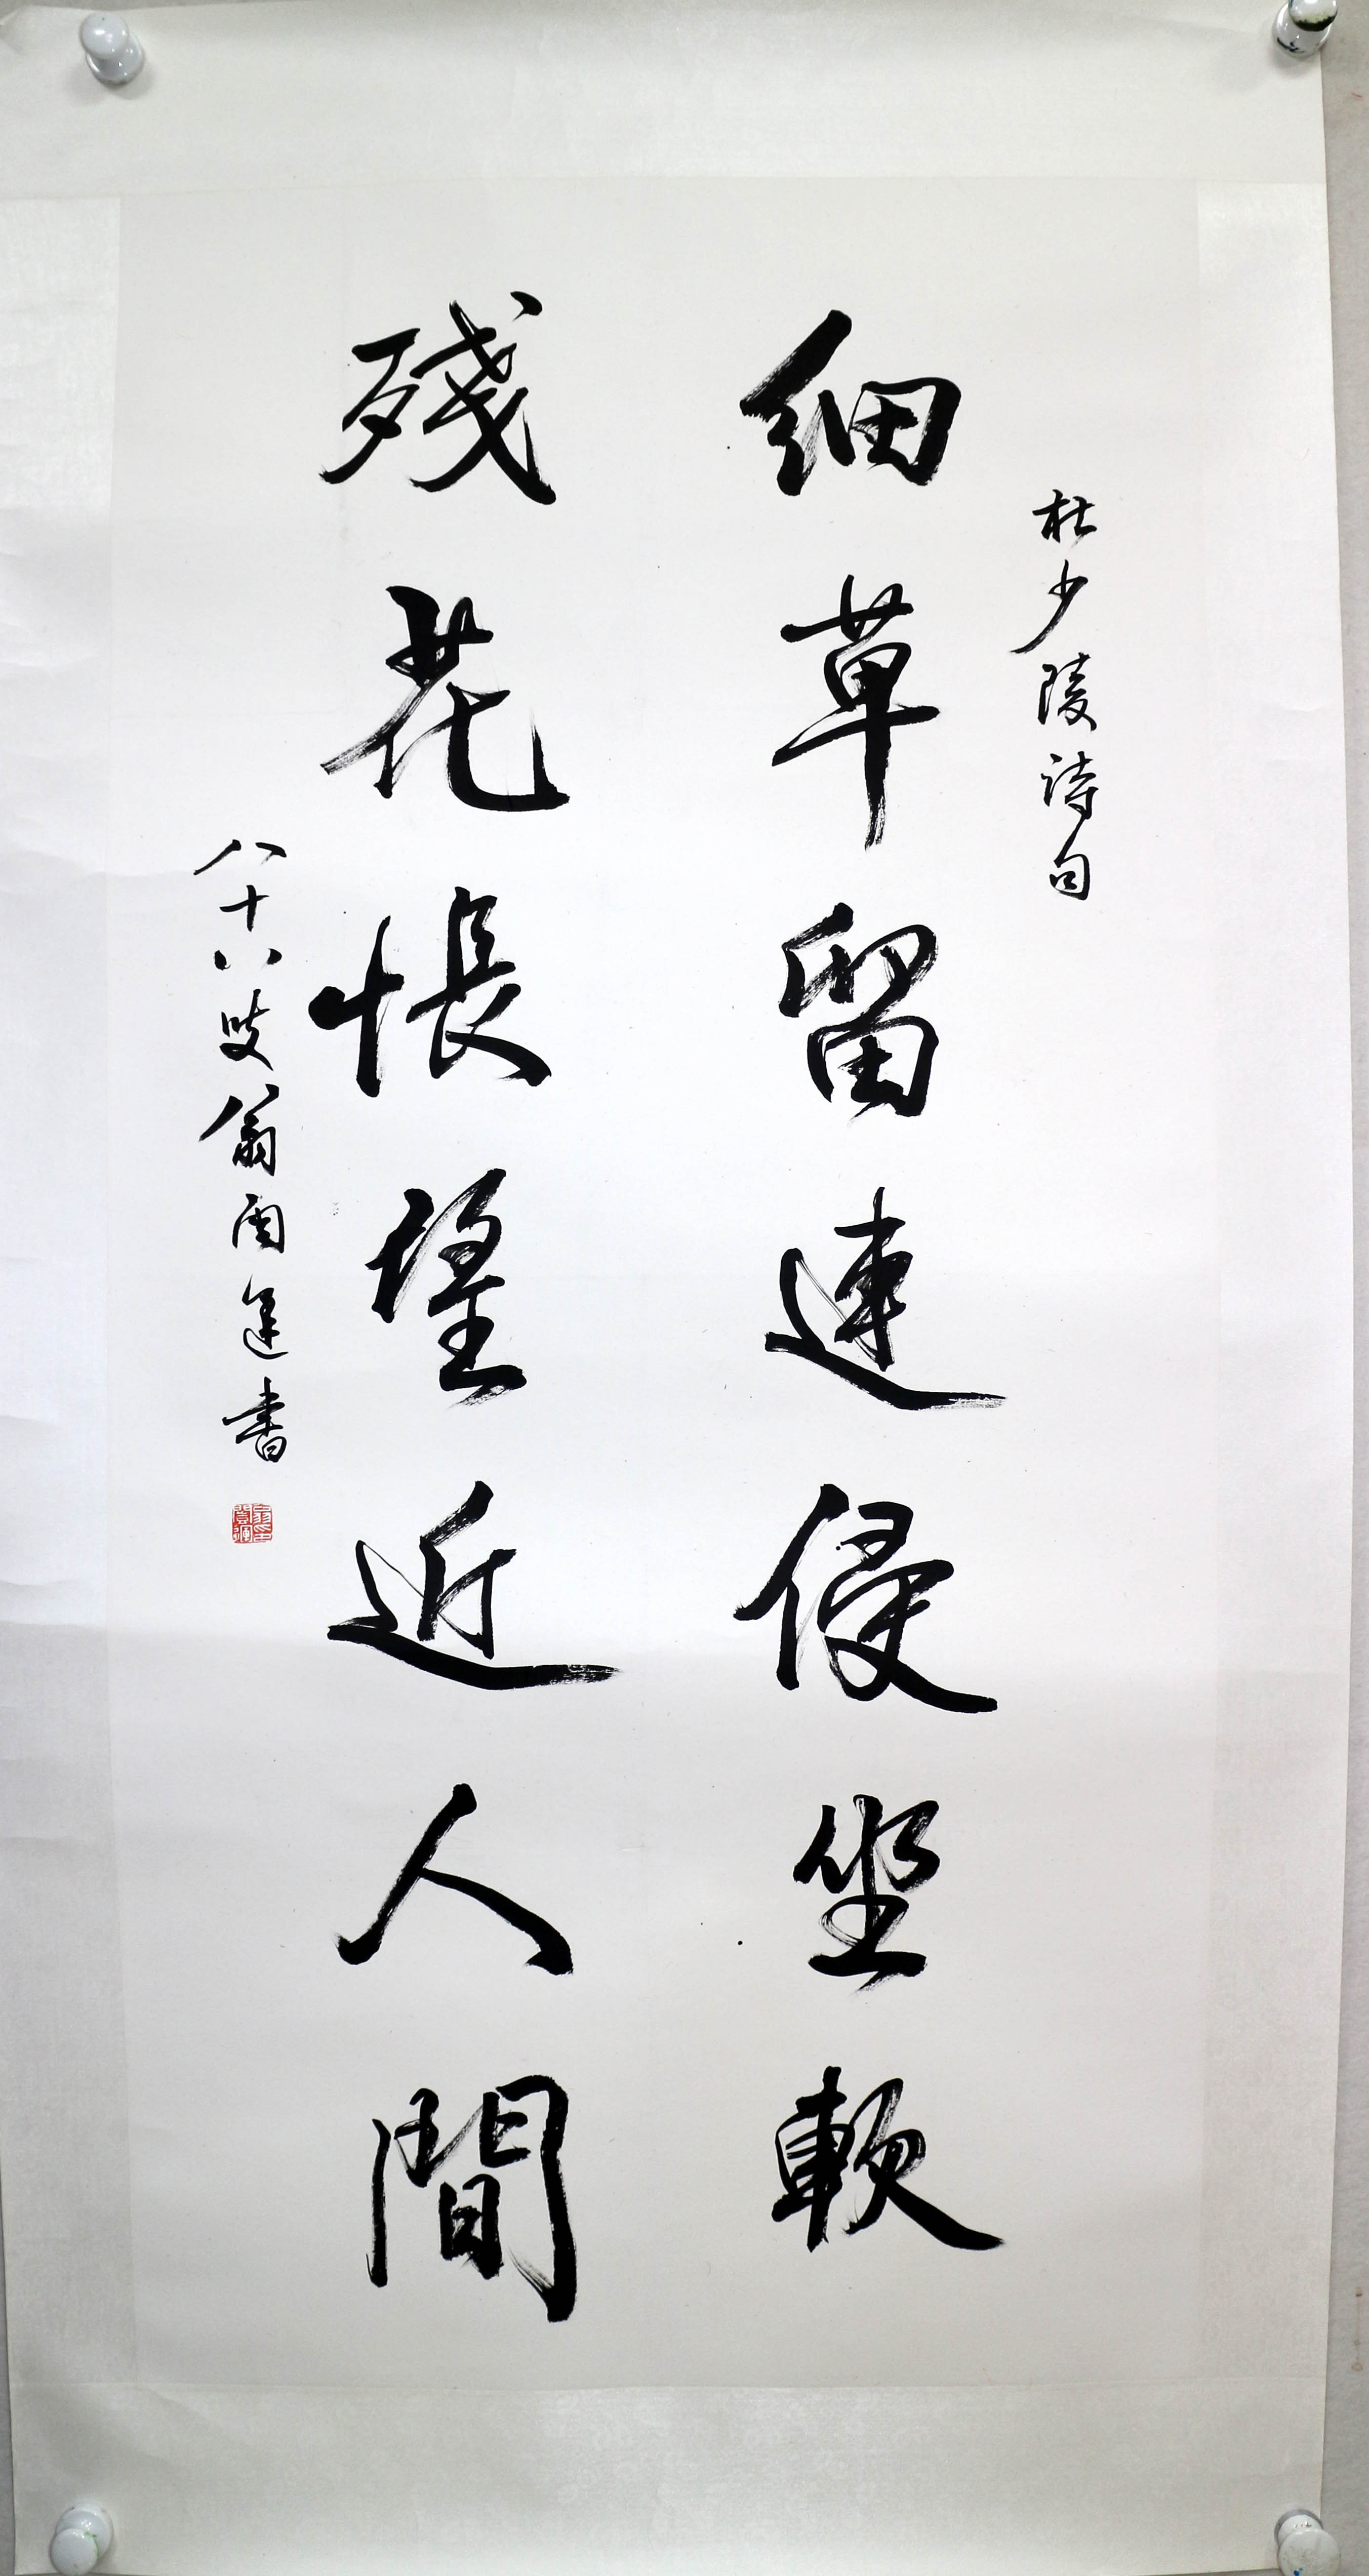 杜少陵詩句
細草留連侵坐軟
殘花悵望近人開
八十八叟翁閶運書